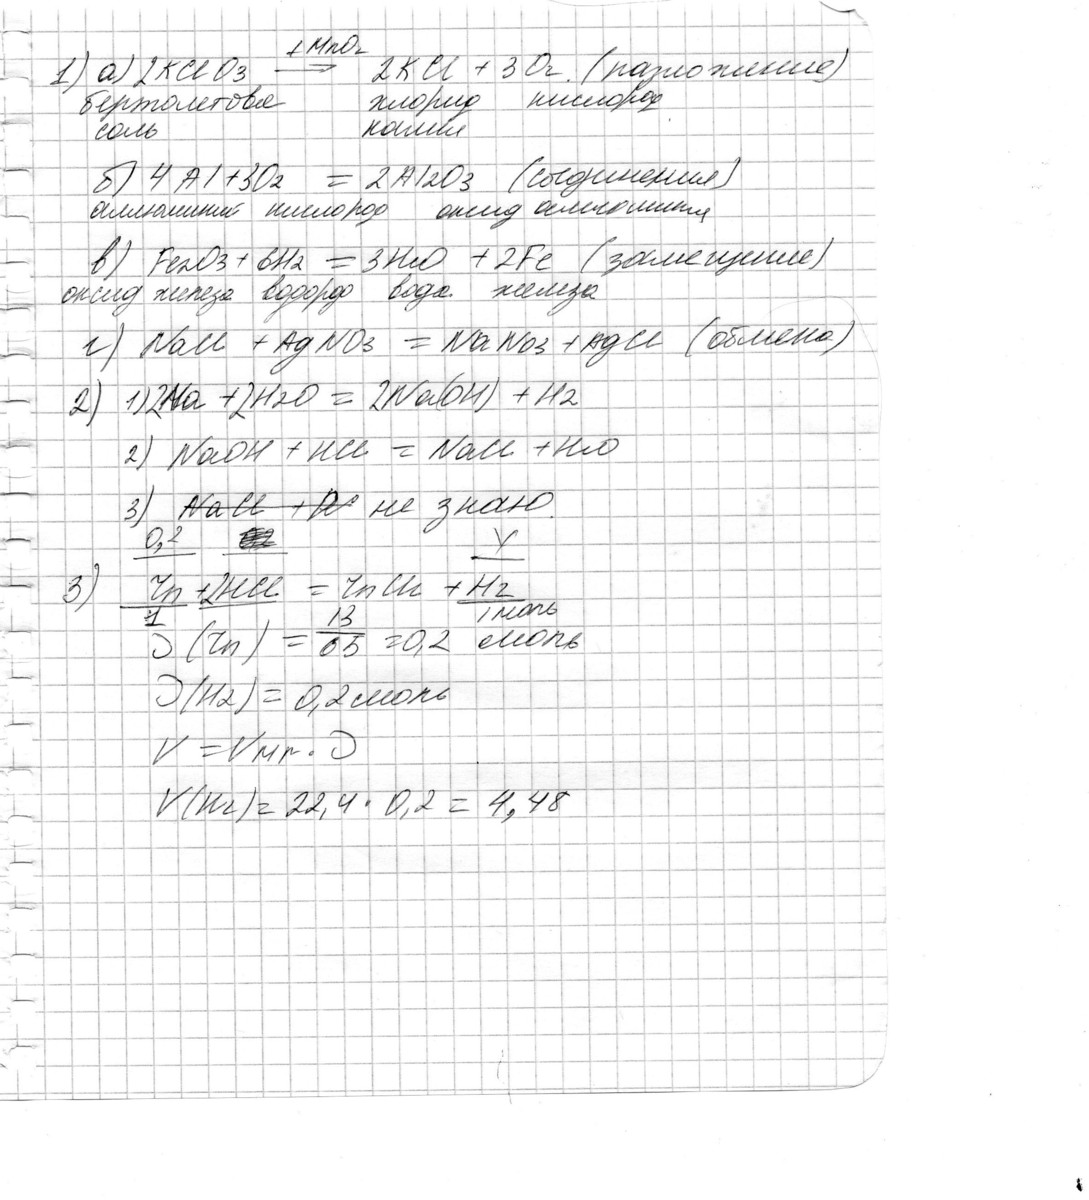 +MnO2
1) а) 2KClO3 → 2KCl + 3O2. (разложение)
бертолетова хлорид кислород
соль калия
б) 4Al+3O2 = 2Al2O3 (соединения)
аллюминий кислород оксид алюминия
в) Fe2O3 + 6H2 = 3H2O + 2Fe (замещение)
оксид железа водордо вода железа
г) NaCl + AgNO3 = NaNO3 + AgCl (обмена)
2) 1) 2Na + 2H2O = 2Na(OH) + H2
2) NaOH + HCl = NaCl + H2O
3) NaCl + не знаю.
0,2 V
3) Zn + 2HCl = ZnCl2 + H2
1 1 моль
Э(Zn) = 13/65 = 0,2 моль
Э(H2) = 0,2 моль
V = Vm · Э
V(H2) = 22,4 · 0,2 = 4,48